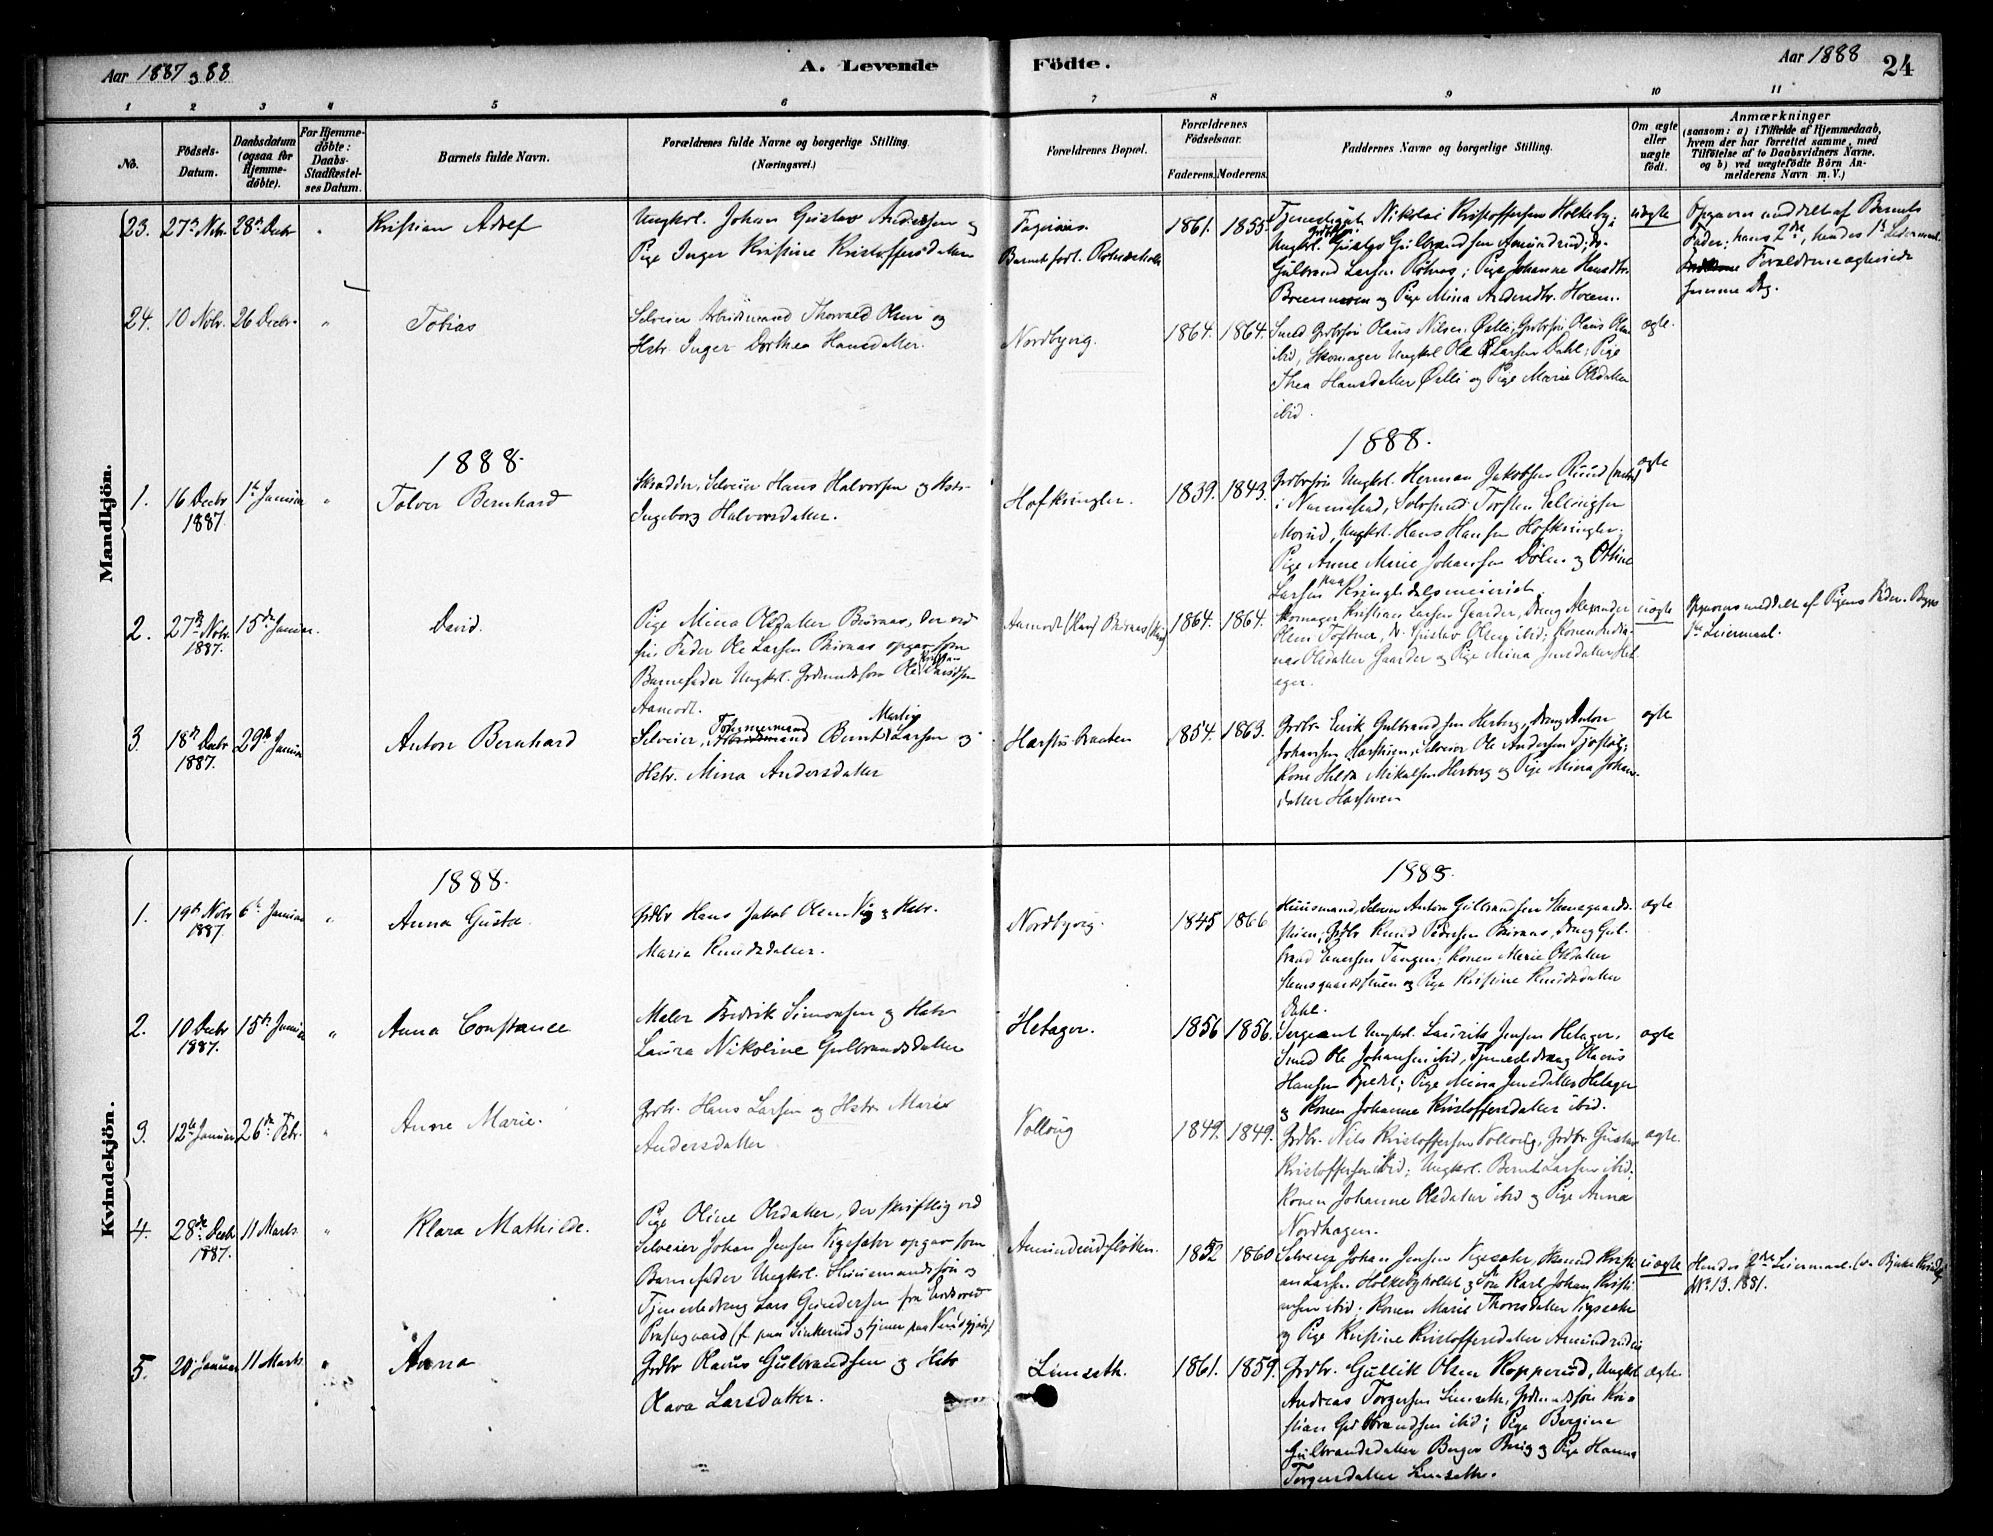 Aar 1887 og 88
A. Levende
Födte.
Aar 1888
24
1 2 3 4 5 6 7 8 9 10 11
No.
Födsels-
Datum.
Daabsdatum
(ogsaa for
Hjemme-
döbte).
For Hjemme-
döbte:
Daabs-
Stadfæstel-
ses Datum.
Barnets fulde Navn.
Forældrenes fulde Navne og borgerlige Stilling.
(Næringsvei.)
Forældrenes Bopæl.
Forældrenes
Födselsaar.
Faderens. Moderens.
Faddernes Navne og borgerlige Stilling.
Om ægte
eller
uægte
födt.
Anmærkninger
(saasom: a) i Tilfælde af Hjemmedaab,
hvem der har forrettet samme, med
Tilföielse af to Daabsvidners Navne,
og b) ved uægtefödte Börn An-
melderens Navn m. V.)
Mandkjön.
23. 27de Nbr. 28de Decbr "
Kristian Adolf
Ungkrl. Johan Gustav Andersen og
Pige Inger Kristine Kristoffersdatter
1861. 1855.
Nikolai Kristoffersen Holkeby;
Gulbrandsen Amundrud;
Gulbrand Larsen ; Pige Johanne Hansdtr.
og Pige Mina Andersdtr.
uægte
Opgaven meddelt af Barnets
Fader; hans 2de, hendes 1ste Leiermaal.
Forældrene ægteviede
samme Dag.
24. 10 Nobr. 26 Decbr. "
Tobias
Selveier Arbeidsmand Thorvald Olsen og
Hstr. Inger Dorthea Hansdatter.
Nordbyvig.
1864. 1864.
Smed Grdbrsön Olaus Nilsen Ø Grdbrsön Olaus Olsen
ibid, Skomager Ungkrl Ole Larsen Dahl; Pige
Thea Hansdatter og Pige Marie Olsdatter
ibid.
ægte.
1888.
1888.
1. 16 Decbr 1ste Januar "
1887.
Tolver Bernhard
Skrædder, Selveier Hans Halvorsen og Hstr.
Ingeborg Halvorsdatter.
Hofkringler.
1839. 1843.
Grdbrsön Ungkrl. Herman Jakobsen
i , Torsten Ellingsen
Morud, Ungkrl. Hans Hansen Hofkringler.
Pige Anne Marie Johansen Dölen og Othine
Larsen paa
ægte
2. 27de Nobr. 15de Januar.
1887.
David.
Pige Mina Olsdatter Burnæs, der ved
sin Fader Ole Larsen Burnæs opgav som
Barnefader Ungkrl. Grdmandssön Ole Kristian Davidsen
Aamodt.
Aamodt (Han) Burnæs (Hun)
1864. 1864.
Skomager Kristian Larsen Gaarder, Dreng Alexander
Olsen Toftner, Gustav Olsen ibid; Konen
Olsdatter Gaarder og Pige Mina Jensdatter Het-
ager.
uægte
Opgaven meddelt af Pigens Fader.
1ste Leiermaal.
3. 18de Decbr 29de Januar
1887.
Anton Bernhard
Selveier, Tömmermand Arbeidsmand Bernt Martin Larsen og
Hstr. Mina Andersdatter
Harstubraaten
1854. 1863.
Grdbr. Erik Gulbrandsen Herberg, Dreng Anton
Johansen Harstuen, Selveier Ole Andersen
Kone Helda Mikalsen Herberg og Pige Mina Johans-
datter Harstuen
ægte
Kvindekjön.
1888.
1888.
1. 19de Nobr 6te Januar "
1887.
Anna Gusta.
Grdbr Hans Jakob Olsen Vig og Hstr.
Maria Knudsdatter.
Nordbyvig.
1845 1866
Huusmand, Selveier Anton Gulbrandsen
Grdbr Knud Pedersen Burnæs, Dreng Gul-
brand Iversen Tangen; Konen Marie Olsdatter
og Pige Kristine Knudsdatter
Dahl.
ægte
2. 10 Decbr 15de Januar "
1887.
Anna Constance
Maler Fredrik Simonsen og Hstr
Laura Nikoline Gulbrandsdatter
Hetager.
1856 1856.
Sergeant Ungkrl. Laurits Jensen Hetager.
Smed Ole Johansen ibid, Tjenestedreng Olaves
Hansen ; Pige Mina Jensdatter Hetager
og Konen Johanne Kristoffersdatter ibid.
ægte
3. 12te Januar 26de Febr. "
Anne Marie.
Grdbr. Hans Larsen og Hstr. Marie
Andersdatter.
Vollaug
1849. 1849.
Grdbr. Nils Kristoffersen Vollaug, Grdbr. Gustav
Kristoffersen ibid; Ungkrl. Bernt Larsen ibid;
Konen Johanne Olsdatter ibid og Pige Anna
Nordhagen.
ægte.
4. 28de Decbr 11 Marts. "
1887.
Klara Mathilde.
Pige Oline Olsdatter, der skriftlig ved
Selveier Johan Jensen Vigesater opgav som
Barnefader Ungkrl. Huusmandssön og
Tjenestedreng Lars Gundersen fra
Præstegaard (f. paa og tjener paa )
Amundrudsletten.
1852 1860
Selveier Johan Jensen Vigesater, Kristi-
an Larsen Holkebyholtet og Sön Karl Johan Kristi-
ansen ibid; Konen Marie Thorsdatter Vigesater
og Pige Kristine Kristoffersdatter
uægte
Hendes 2det Leiermaal. (
No 13. 1881.
5. 20 Januar 11 Marts "
Anna
Grdbr Olaus Gulbrandsen og Hstr
Olava Larsdatter.
Limseth.
1861. 1859.
Grdbr. Gullik Olsen Kopperud, Ungkrl
Andreas Torgersen Limseth, Grdmandssön Kri-
stian Gulbrandsen ibid; Pige Bergine
Gulbrandsdatter og Pige Hanna
Torgersdatter Limseth.
ægte.